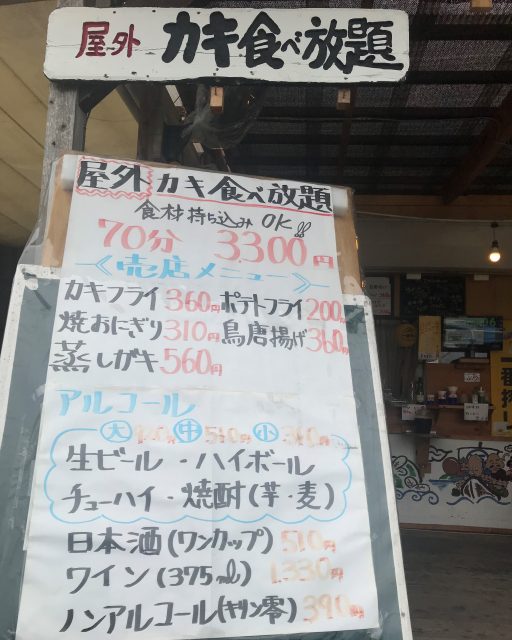 屋外 カキ食べ放題
屋外 カキ食べ放題
食材持ち込み OK
70分 3,300円
売店メニュー
カキフライ 360円 ポテトフライ 200円
焼おにぎり 310円 鳥唐揚げ 360円
蒸しガキ 560円
アルコール
大 中 510円 小
生ビール・ハイボール
チューハイ・焼酎(芋・麦)
日本酒(ワンカップ) 510円
ワイン(375ml) 1,330円
ノンアルコール(キリン零) 390円